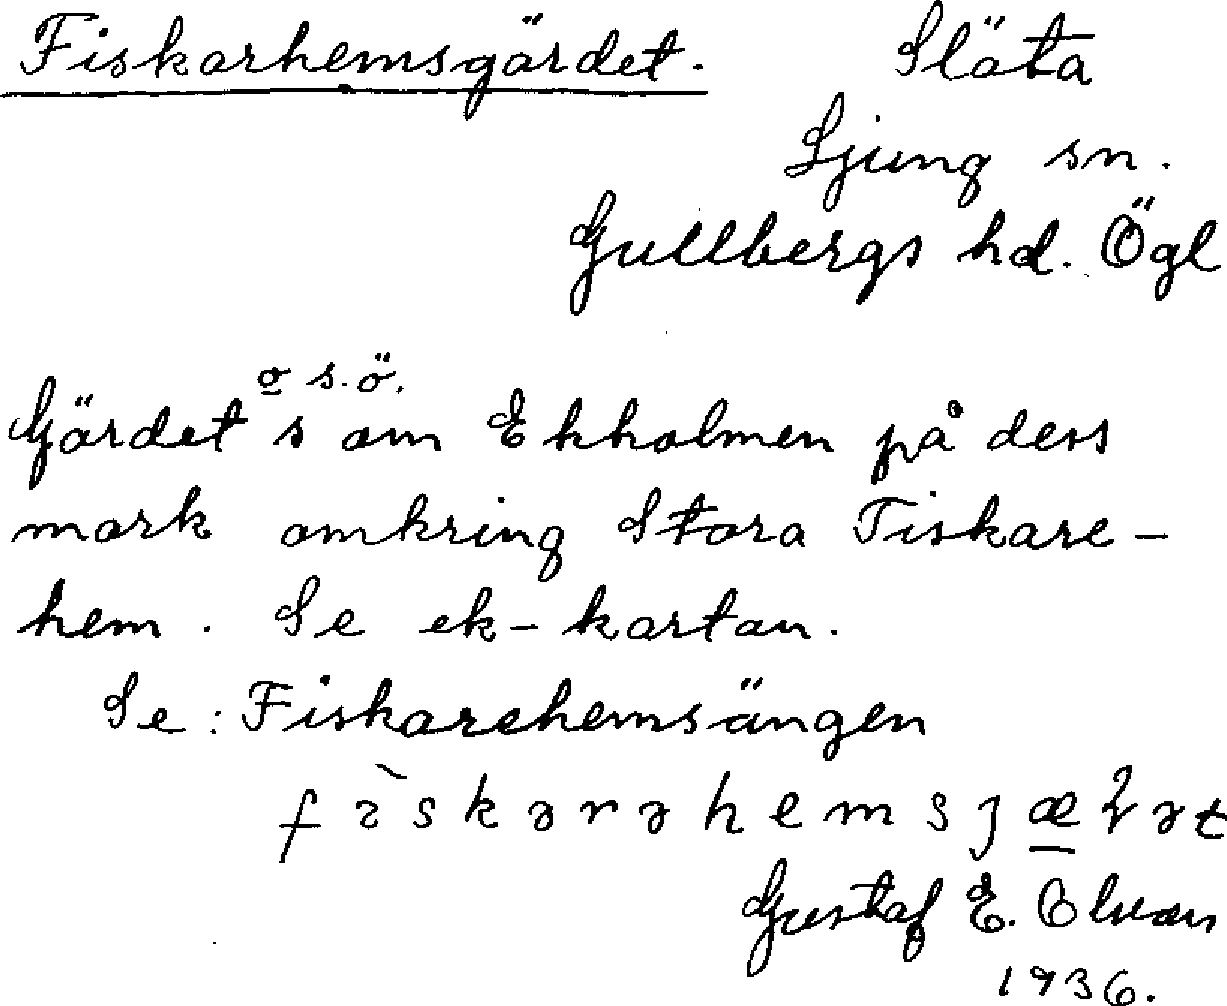 Fiskarhemsgärdet. Släta
Ljung sn.
Gullbergs hd. Ögl
o s.ö.
Gärdet s om Ekholmen på dess
mark omkring Stora Fiskare-
hem. Se ek-kartan.
Se: Fiskarehemsängen
Gustaf E.
1936.